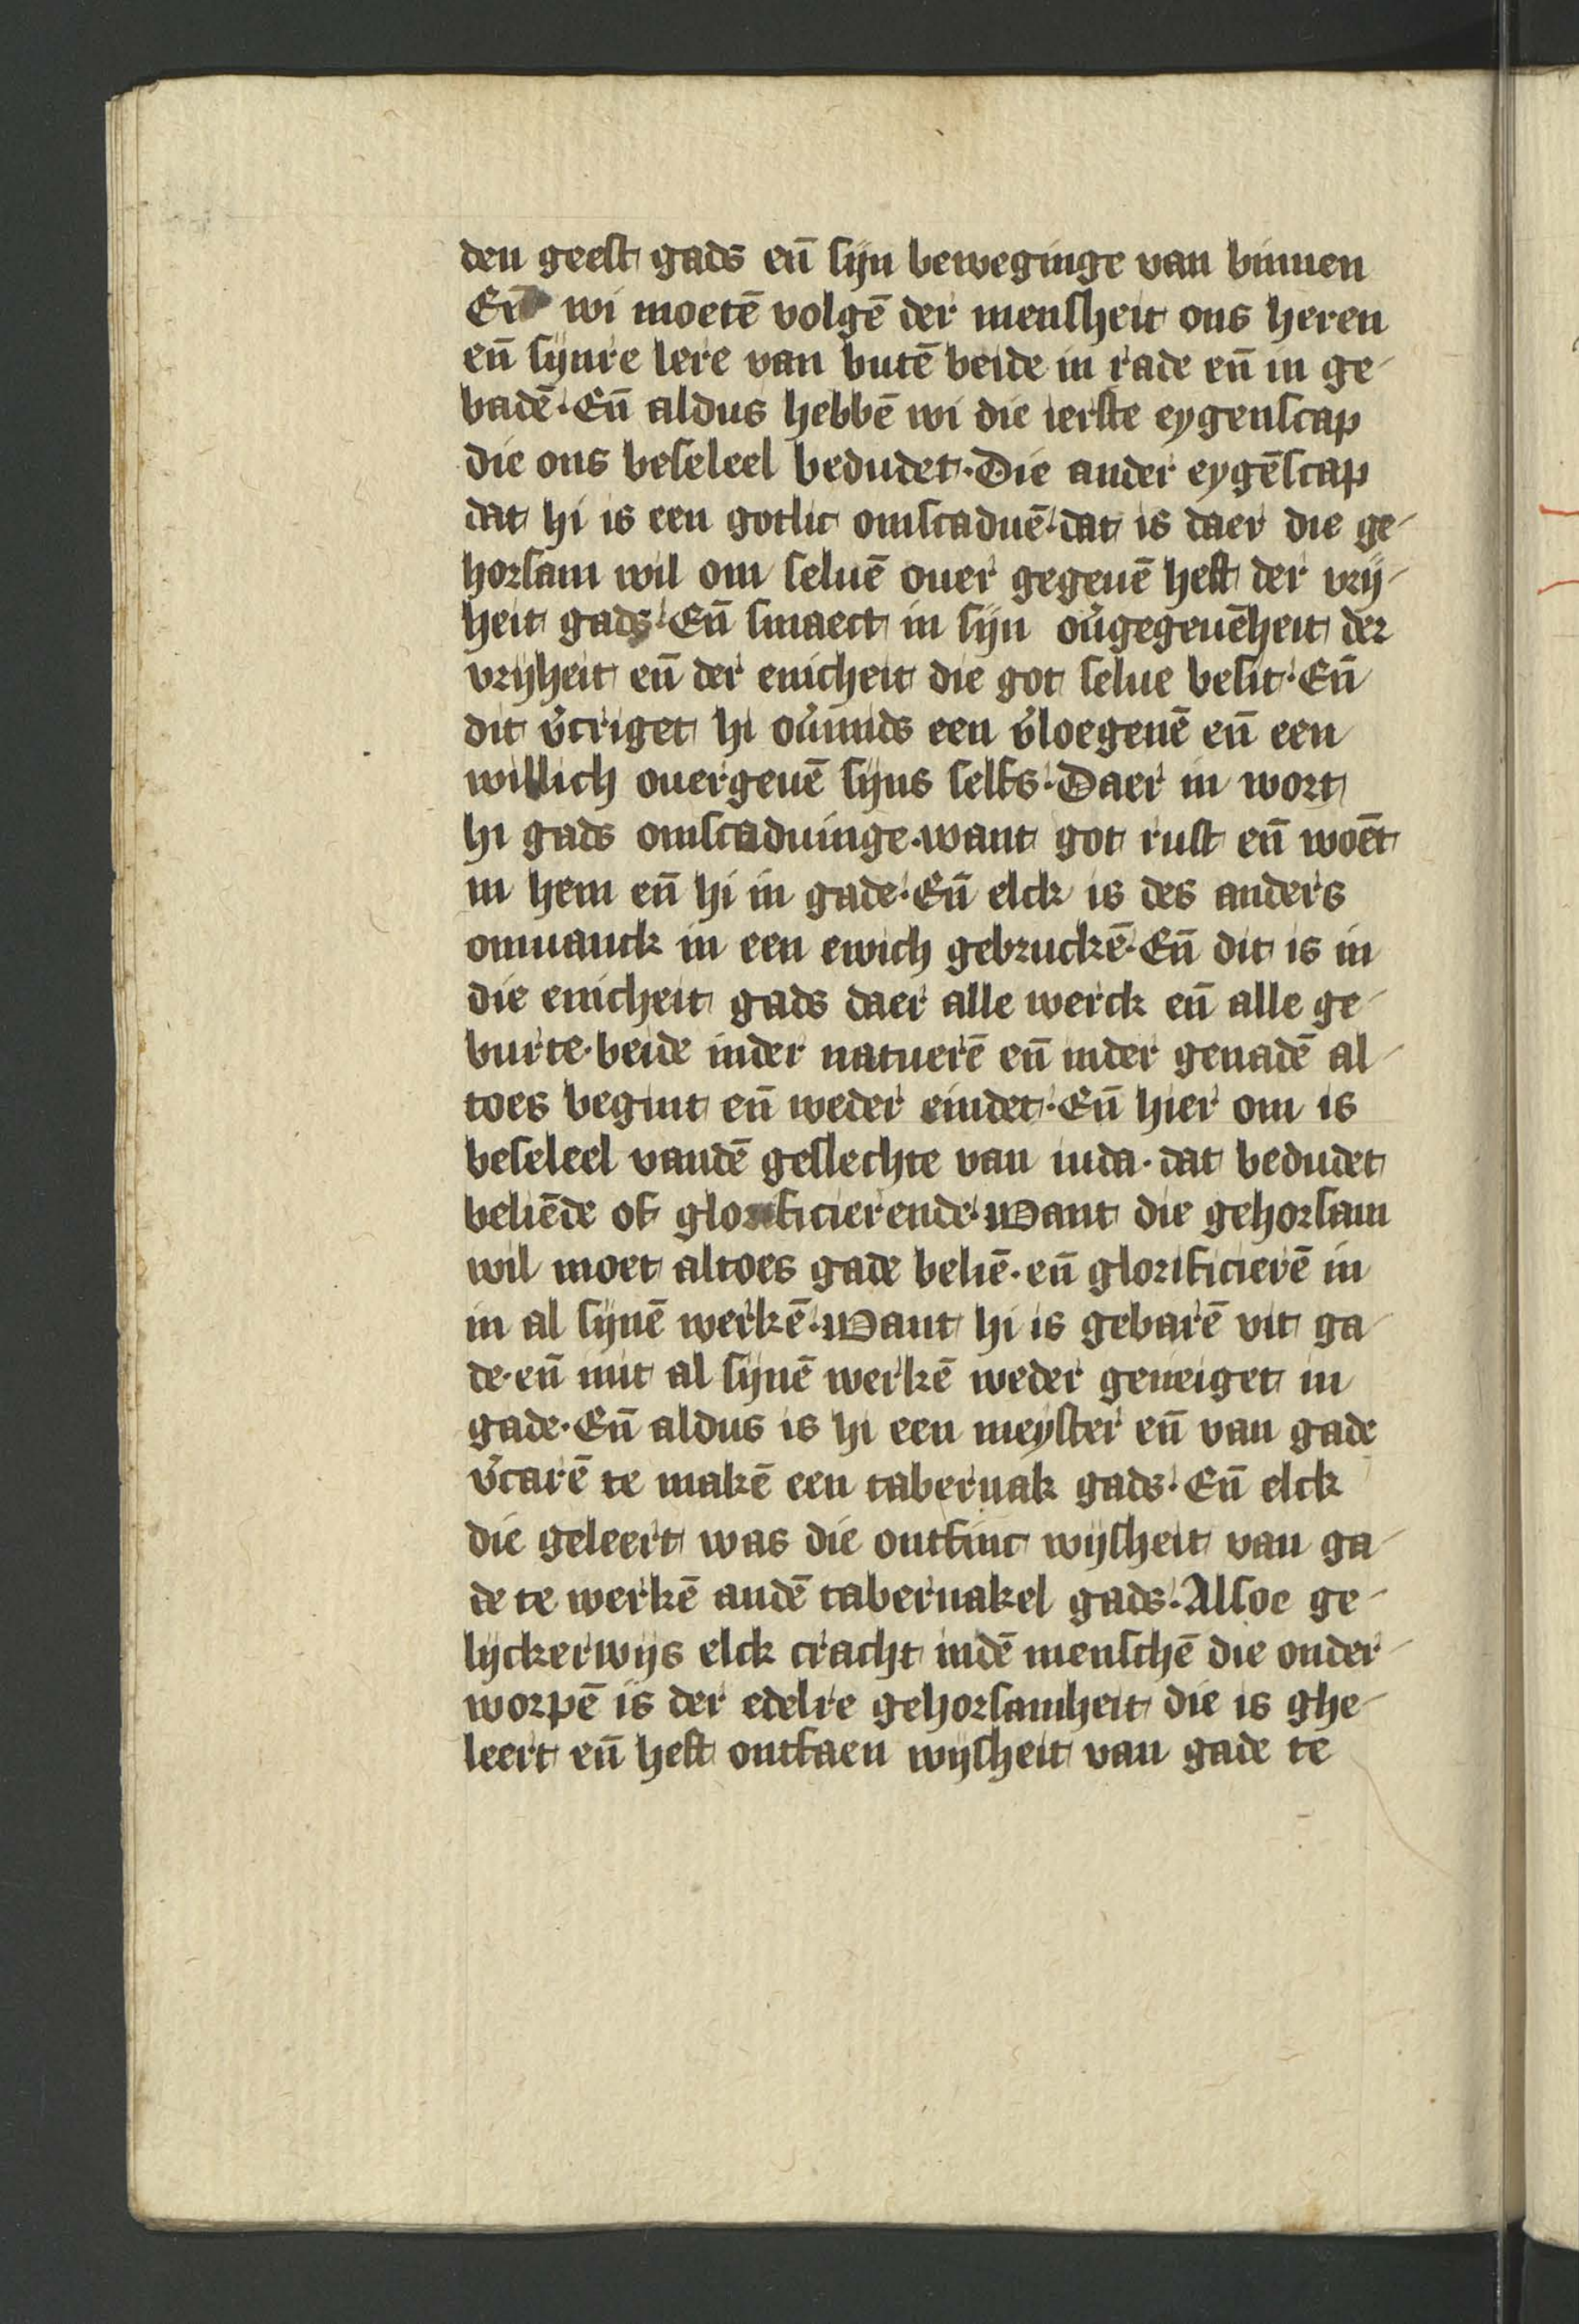 den geest gads en̄ sijn beweginge van binnen
En̄ wi moetē volgē der mensheit ons heren
en̄ sijnre lere van butē beide in rade en̄ in ge-
badē. En̄ aldus hebbē wi die ierste eygenscap
die ons beseleel bedudet. Die ander eygēscap
dat hi is een gotlic omscaduē. dat is daer die ge-
horsam wil om seluē ouer gegeuē heft der vrij-
heit gads. En̄ smaect in sijn ou̓gegeuēheit der
vrijheit en̄ der enicheit die got selue besit. En̄
dit v̓criget hi ou̓mids een v̓loegenē en̄ een
willich ouergeuē sijns selfs. Daer in wort
hi gads omscaduinge. want got rust en̄ woēt
in hem en̄ hi in gade. En̄ elck is des anders
omuanck in een ewich gebruckē. En̄ dit is in
die enicheit gads daer alle werck en̄ alle ge-
burte. beide inder natuerē en̄ inder genadē al-
toes begint en̄ weder eindet. En̄ hier om is
beseleel vandē geslechte van iuda. dat bedudet
beliēde of glorificierende. Want die gehorsam
wil moet altoes gade beliē. en̄ glorificierē in
in al sijnē werkē. Want hi is gebarē vit ga-
de. en̄ mit al sijnē werkē weder geneiget in
gade. En̄ aldus is hi een meyster en̄ van gade
v̓carē te makē een tabernak gads. En̄ elck
die geleert was die ontfinc wijsheit van ga-
de te werkē andē tabernakel gads. Alsoe ge-
lijckerwijs elck cracht indē menschē die onder-
worpē is der edelre gehorsamheit die is ghe-
leert en̄ heft ontfaen wijsheit van gade te